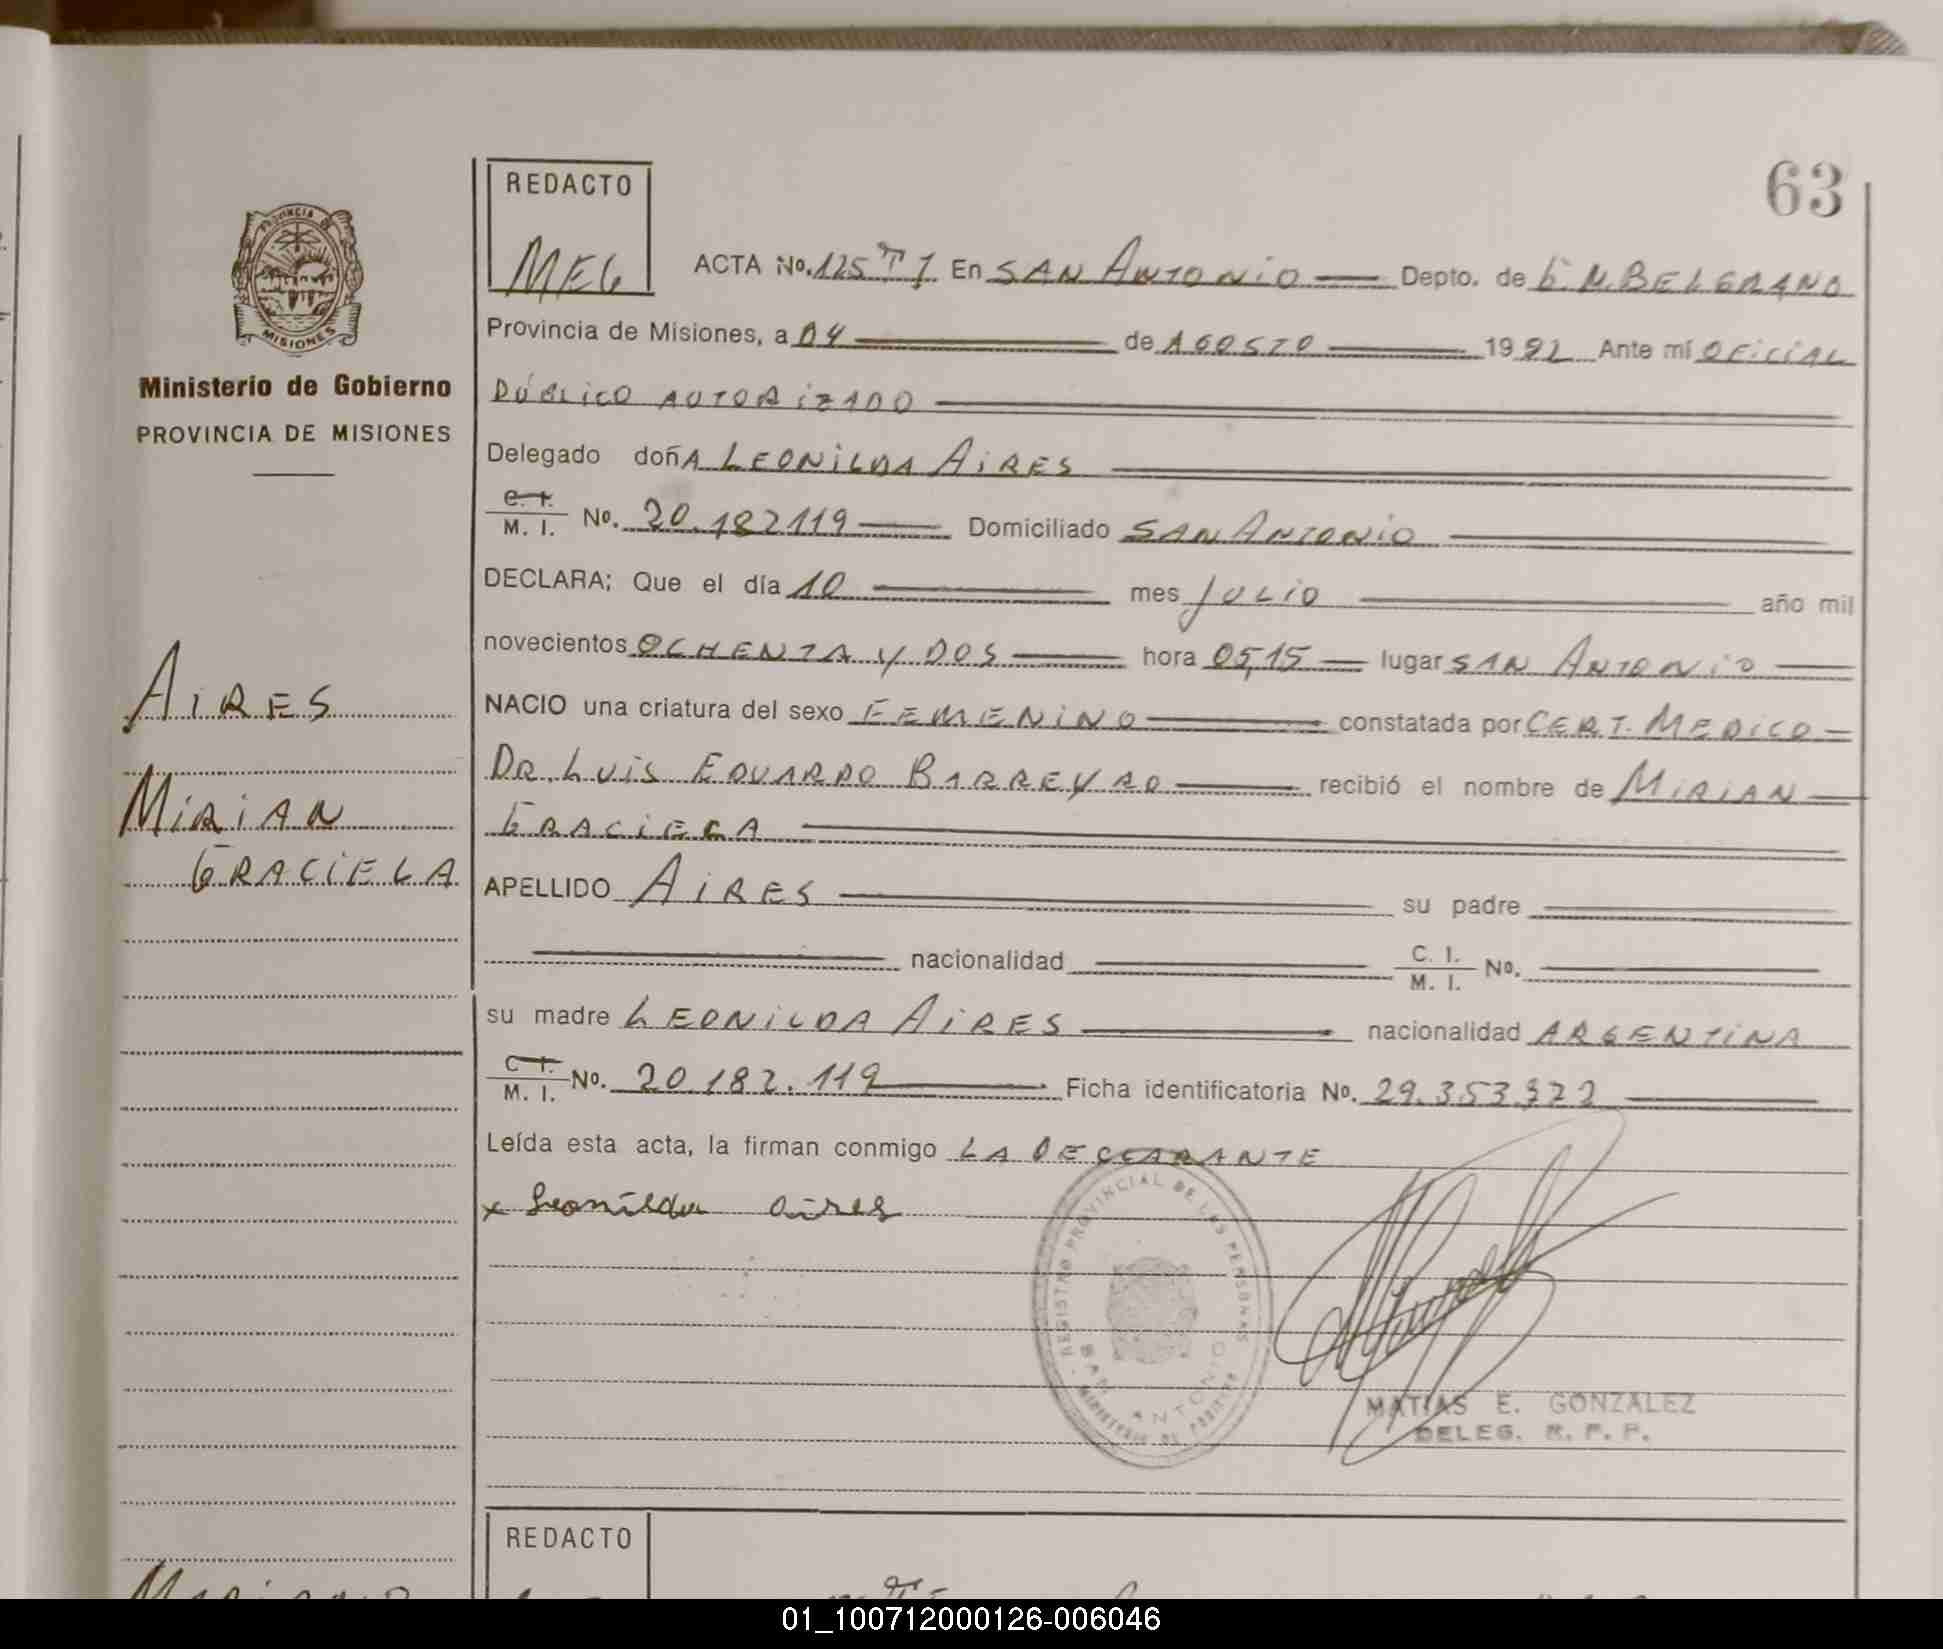 63
REDACTO
MEG
PROVINCIA DE
MISIONES
Ministerio de Gobierno
PROVINCIA DE MISIONES
AIRES
MIRIAN
GRACIELA
ACTA No. 125 T I En SAN ANTONIO Depto. de G. M. BELGRANO
Provincia de Misiones, a 04 de AGOSTO 1982 Ante mí OFICIAL
PÚBLICO AUTORIZADO
Delegado doñA LEONILDA AIRES
C. I. / M. I. No. 20.182119 Domiciliado SAN ANTONIO
DECLARA; Que el día 10 mes JULIO año mil
novecientos OCHENTA Y DOS hora 05,15 lugar SAN ANTONIO
NACIO una criatura del sexo FEMENINO constatada por CERT. MEDICO
DR. LUIS EDUARDO BARREYRO recibió el nombre de MIRIAN
GRACIELA
APELLIDO AIRES su padre
nacionalidad C. I. / M. I. No.
su madre LEONILDA AIRES nacionalidad ARGENTINA
C. I. / M. I. No. 20.182.119 Ficha identificatoria No. 29.353.322
Leída esta acta, la firman conmigo LA DECLARANTE
x Leonilda aires
REGISTRO PROVINCIAL DE LAS PERSONAS
SAN ANTONIO
MINISTERIO DE GOBIERNO
MATIAS E. GONZALEZ
DELEG. R. P. P.
REDACTO
01_100712000126-006046